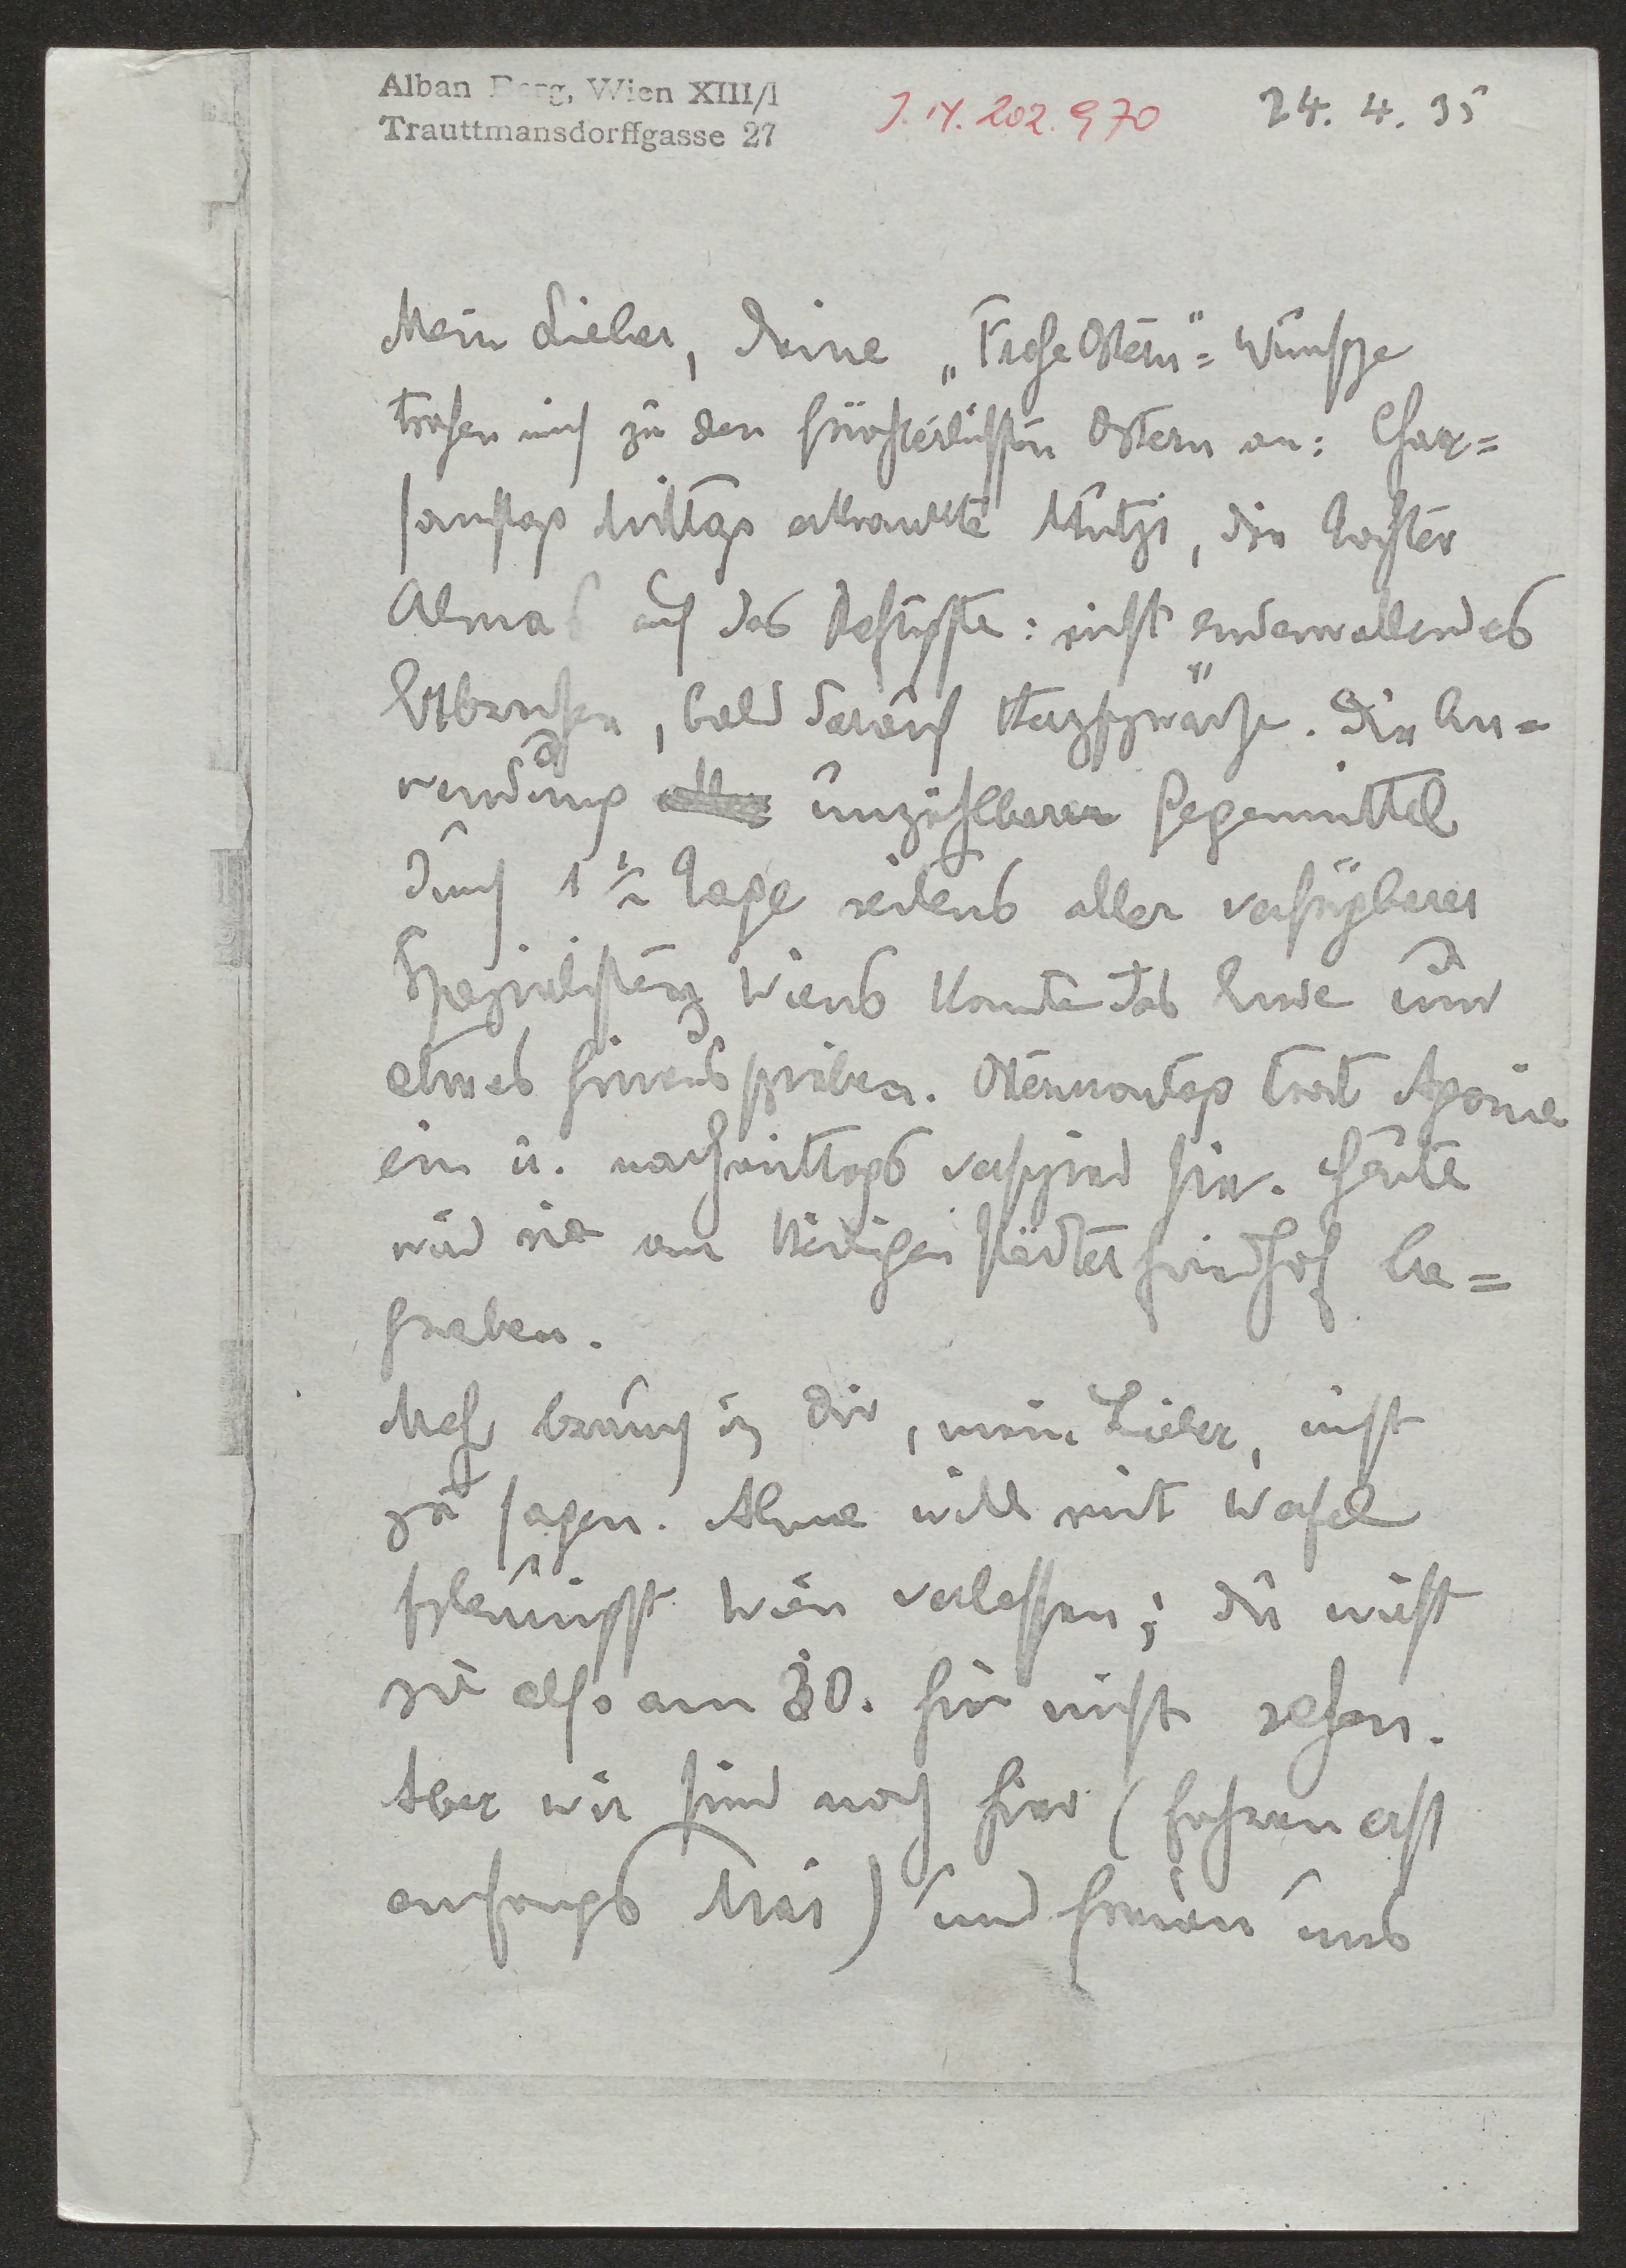 Alban Berg, Wien XIII/1
Trauttmansdorffgasse 27
J. N. 202.970
24. 4. 35
Mein Lieber, Deine „Frohe Ostern"=Wünsche
trafen mich zu den fürchterlichsten Ostern an: Char=
samstag Mittags erkrankte Mutzi, die Tochter
Almas auf das Heftigste: nicht endenwollendes
Erbrechen, bald darauf Herzschwäche. Die An=
wendung unzählbarer Gegenmittel
durch 1 ½ Tage seitens aller verfügbarer
Spezialisten Wiens konnte das Ende nur
etwas hinausschieben. Ostermontag trat Agonie
ein u. nachmittags verschied sie. Heute
wird sie am Heiligenstädterfriedhof be=
graben.
Mehr brauch ich Dir, mein Lieber, nicht
zu sagen. Alma will mit Werfel
schleunigst Wien verlassen; Du wirst
sie also am 30. hier nicht sehen.
Aber wir sind noch hier (fahren erst
anfangs Mai) und freuen uns